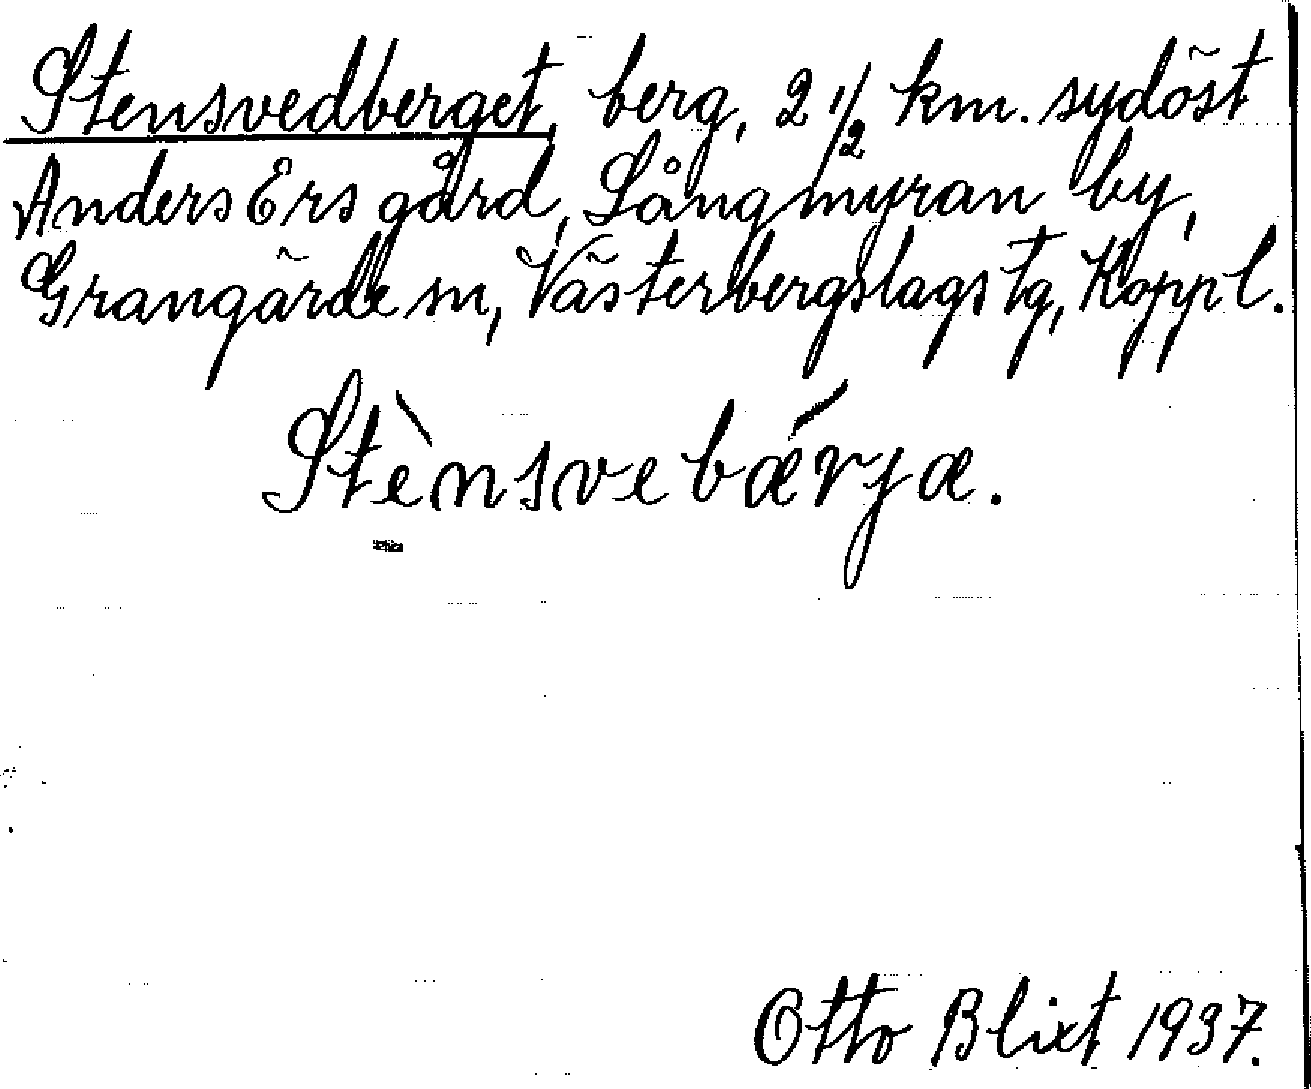 Stensvedberget, berg, 2 1/2 km. sydöst
Anders Ers gård, Långmyran by,
Grangärde sn, Västerbergslags tg, Koppl.
Stènsvebǽrjæ.
Otto Blixt 1937.